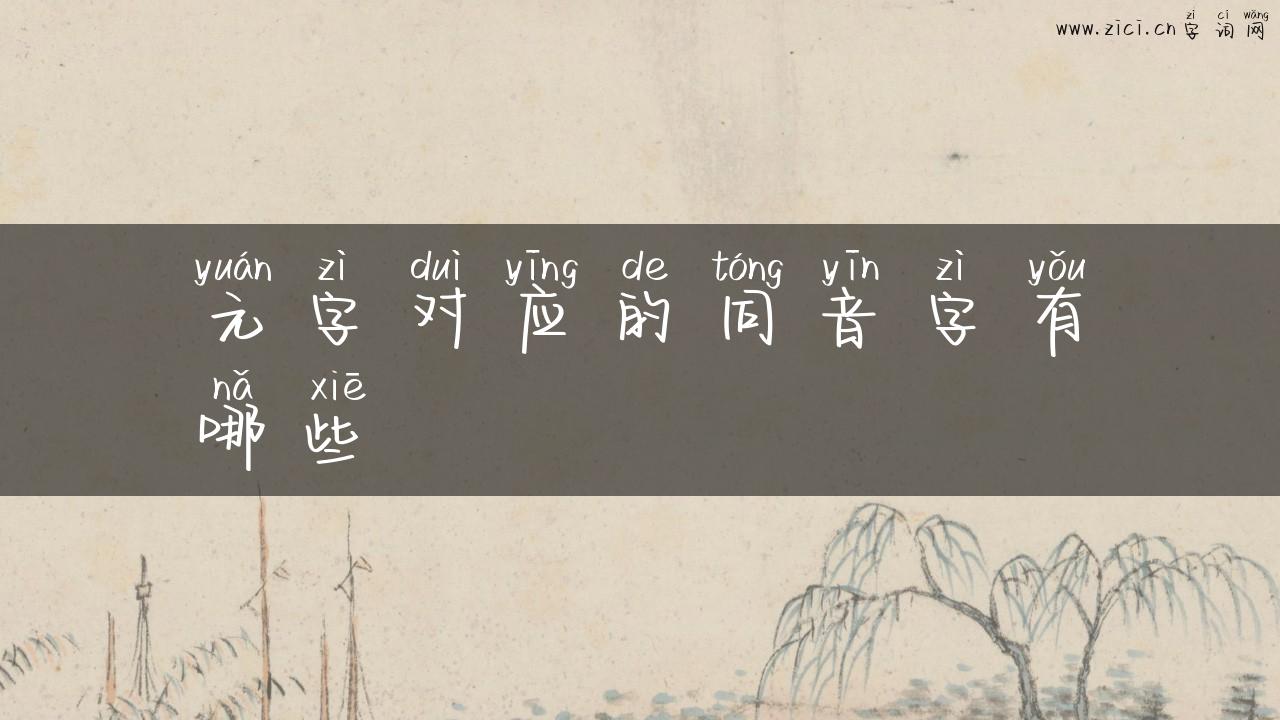 zì cí wǎng
www.zici.cn 字 词 网
yuán zì duì yīng de tóng yīn zì yǒu
元 字 对 应 的 同 音 字 有
nǎ xiē
哪 些